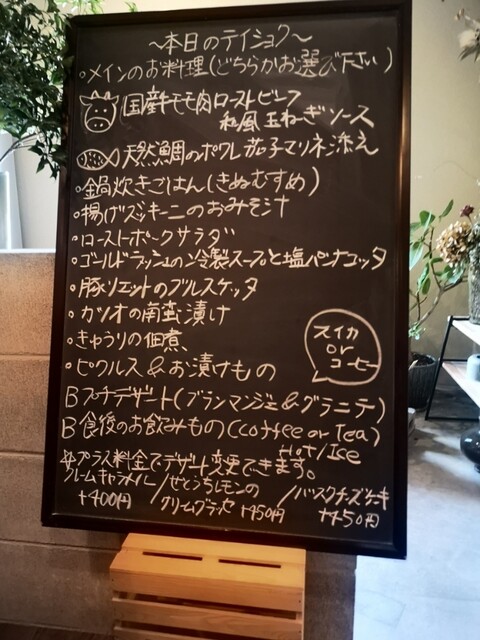 ～本日のテイショク～
・メインのお料理(どちらかお選び下さい)
国産牛モモ肉ローストビーフ
和風玉ねぎソース
天然鯛のポワレ茄子マリネ添え
・鍋炊きごはん(きぬむすめ)
・揚げズッキーニのおみそ汁
・ローストポークサラダ
・ゴールドラッシュの冷製スープと塩パンナコッタ
・豚リエットのブルスケッタ
・カツオの南蛮漬け
・きゅうりの佃煮
・ピクルス&お漬けもの
スイカ
or
コーヒー
Bプチデザート(ブランマンジェ&グラニテ)
B食後のお飲みもの(Coffee or Tea)
Hot/Ice
プラス料金でデザート変更できます。
クレームキャラメル/せとうちレモンの/バスクチーズケーキ
+400円 クリームグラッセ+450円 +450円